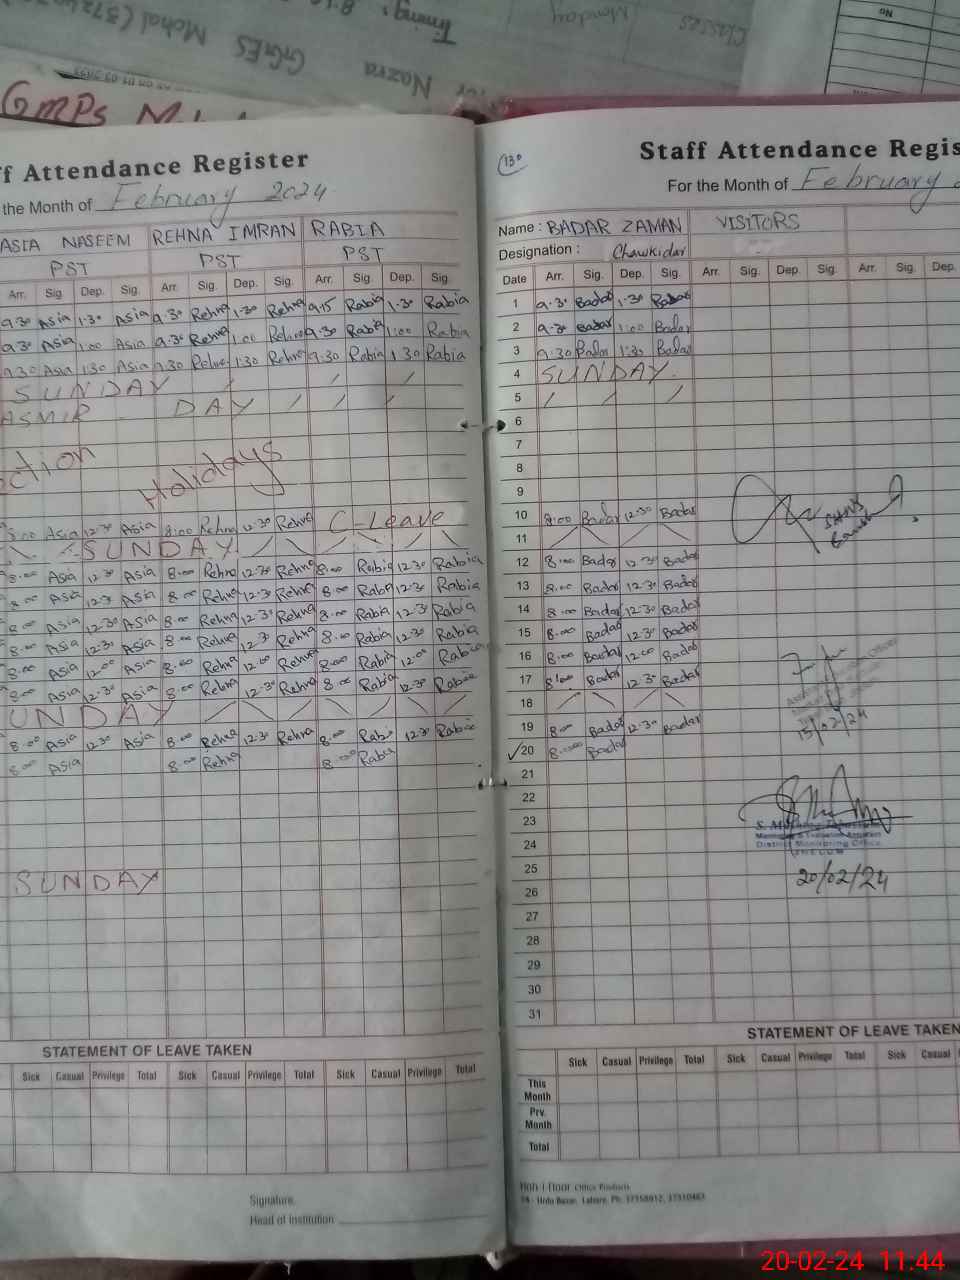 Classes
Monday
Timing:
GGES Mohal
Nazra
No
GMPS
ff Attendance Register
the Month of February 2024
ASIA NASEEM REHNA IMRAN RABIA
PST PST PST
Arr. Sig. Dep. Sig. Arr. Sig. Dep. Sig. Arr. Sig. Dep. Sig.
9:30 Asia 1:30 Asia 9:30 Rehna 1:30 Rehna 9:15 Rabia 1:30 Rabia
9:30 Asia 1:00 Asia 9:30 Rehna 1:00 Rehna 9:30 Rabia 1:00 Rabia
9:30 Asia 1:30 Asia 9:30 Rehna 1:30 Rehna 9:30 Rabia 1:30 Rabia
SUNDAY
ASMIR DAY
ction Holidays
8:00 Asia 12:30 Asia 8:00 Rehna 12:30 Rehna C-Leave
SUNDAY
8:00 Asia 12:30 Asia 8:00 Rehna 12:30 Rehna 8:00 Rabia 12:30 Rabia
8:00 Asia 12:30 Asia 8:00 Rehna 12:30 Rehna 8:00 Rabia 12:30 Rabia
8:00 Asia 12:30 Asia 8:00 Rehna 12:30 Rehna 8:00 Rabia 12:30 Rabia
8:00 Asia 12:30 Asia 8:00 Rehna 12:30 Rehna 8:00 Rabia 12:30 Rabia
8:00 Asia 12:00 Asia 8:00 Rehna 12:00 Rehna 8:00 Rabia 12:00 Rabia
8:00 Asia 12:30 Asia 8:00 Rehna 12:30 Rehna 8:00 Rabia 12:30 Rabia
UNDAY
8:00 Asia 12:30 Asia 8:00 Rehna 12:30 Rehna 8:00 Rabia 12:30 Rabia
8:00 Asia 8:00 Rehna 8:00 Rabia
SUNDAY
STATEMENT OF LEAVE TAKEN
Sick Casual Privilege Total Sick Casual Privilege Total Sick Casual Privilege Total
Signature
Head of institution
130
Staff Attendance Regis
For the Month of February
Name : BADAR ZAMAN VISITORS
Designation : Chawkidar
Date Arr. Sig. Dep. Sig. Arr. Sig. Dep. Sig. Arr. Sig. Dep.
1 9:30 Badar 1:30 Badar
2 9:30 Badar 1:00 Badar
3 9:30 Badar 1:30 Badar
4 SUNDAY
5
6
7
8
9
10 8:00 Badar 12:30 Badar
11
12 8:00 Badar 12:30 Badar
13 8:00 Badar 12:30 Badar
14 8:00 Badar 12:30 Badar
15 8:00 Badar 12:30 Badar
16 8:00 Badar 12:00 Badar
17 8:00 Badar 12:30 Badar
18
19 8:00 Badar 12:30 Badar
20 8:00 Badar
21
22
23
24
25
26
27
28
29
30
31
15/02/24
District Monitoring Office
20/02/24
STATEMENT OF LEAVE TAKEN
Sick Casual Privilege Total Sick Casual Privilege Total Sick Casual
This Month
Prv. Month
Total
Office Products
Urdu Bazar, Lahore. Ph: 37158012, 37310463
20-02-24 11:44